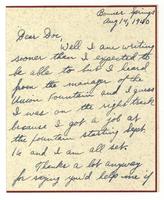 Bonner Springs
Aug 14, 1940
Dear Doc,
Well I am writing
sooner than I expected to
be able to but I heard
from the manager of the
Union Fountain and I guess
I was on the right track
because I got a job at
the fountain starting Sept.
14 and I am all set.
Thanks a lot anyway
for saying you'd help me if